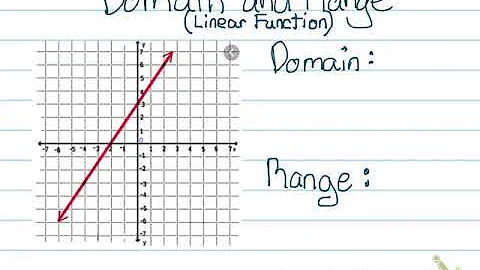 Domain and Range
(Linear Function)
Domain:
Range:
y
7
6
5
4
3
2
1
0
-7 -6 -5 -4 -3 -2 -1 1 2 3 4 5 6 7 x
-1
-2
-3
-4
-5
-6
-7
y